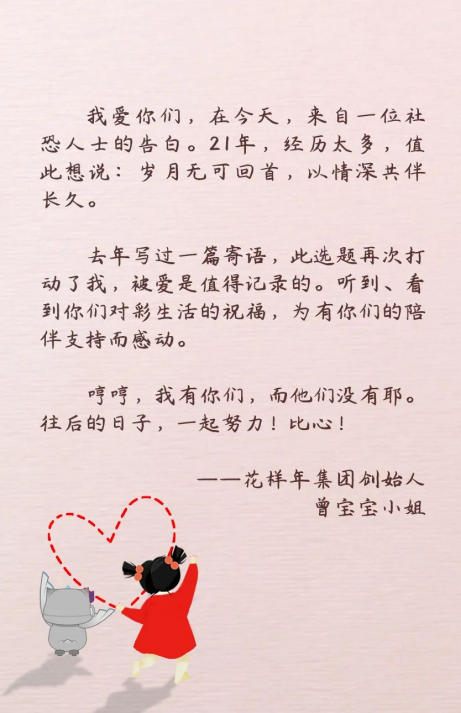 我爱你们，在今天，来自一位社
恐人士的告白。21年，经历太多，值
此想说：岁月无可回首，以情深共伴
长久。
去年写过一篇寄语，此选题再次打
动了我，被爱是值得记录的。听到、看
到你们对彩生活的祝福，为有你们的陪
伴支持而感动。
哼哼，我有你们，而他们没有耶。
往后的日子，一起努力！比心！
——花样年集团创始人
曾宝宝小姐